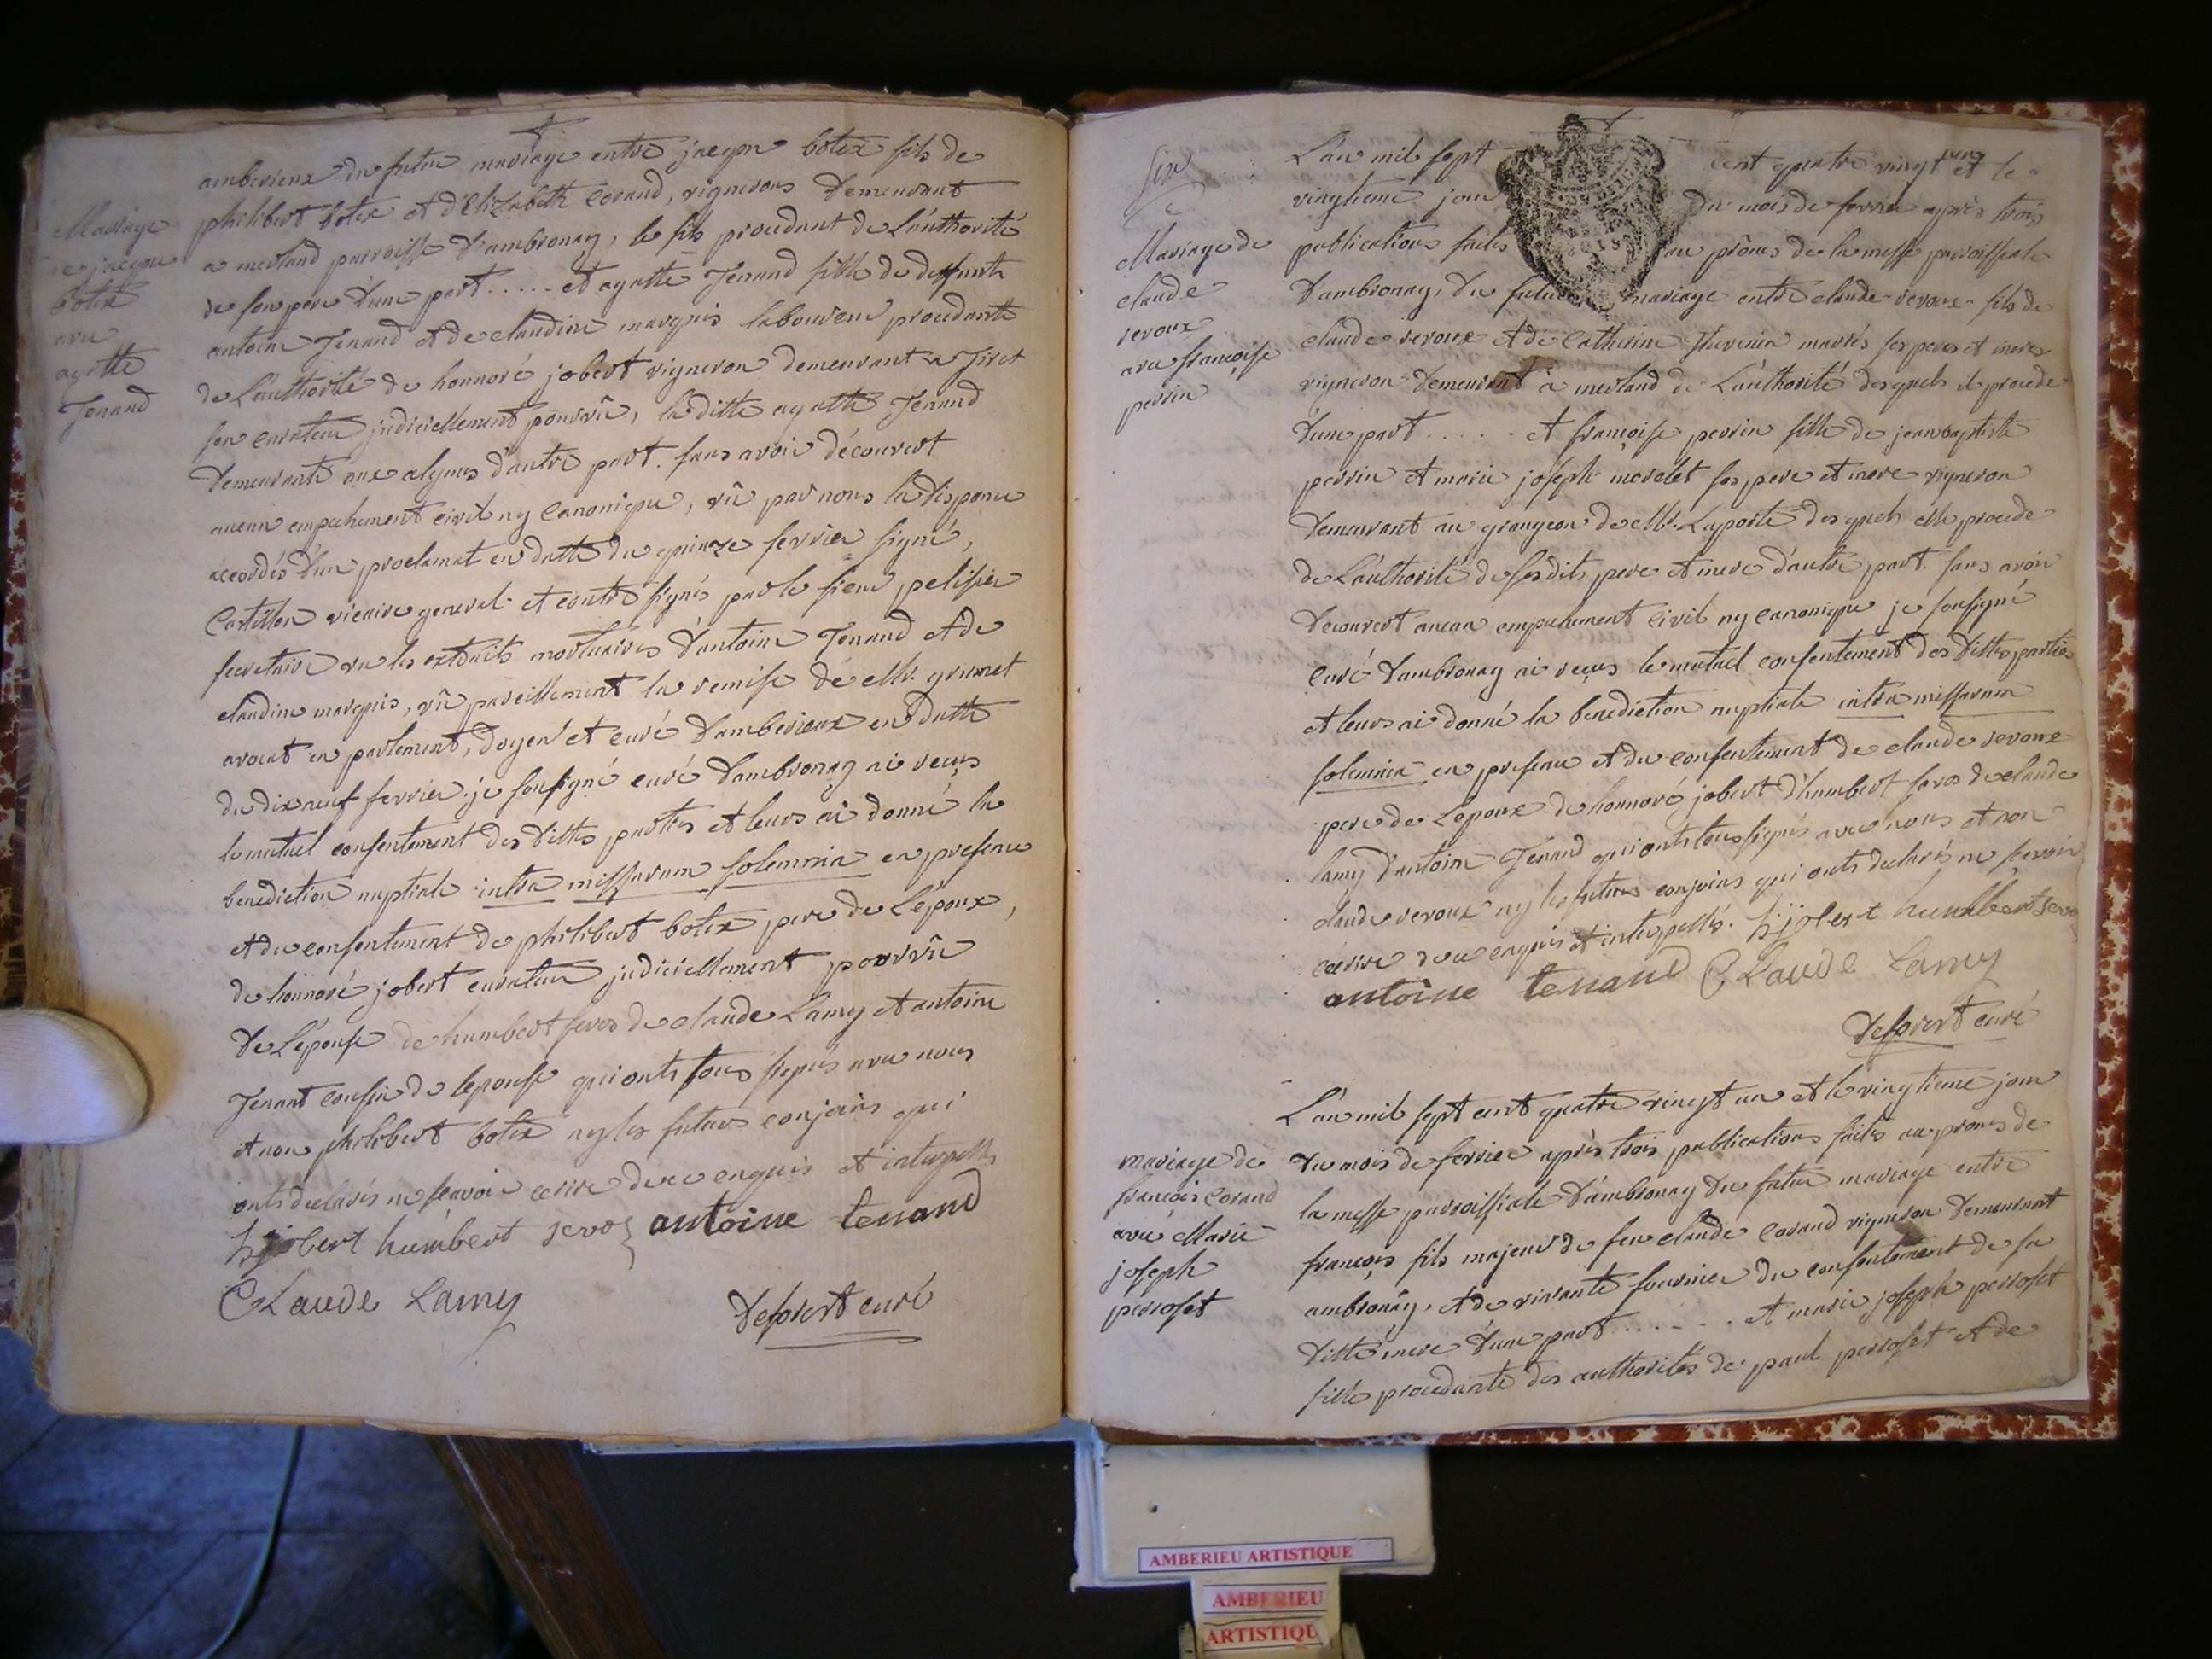 Mariage
de jacque
botex
avec
agathe
Tenand
amberieux du futur mariage entre jacque botex fils de
philibert botex et d'Elizabeth Corand, vignerons demeurant
a merland parroisse d'ambronay, le fils procedant de L'authorité
de son pere d'une part ..... et agatte Tenand fille de deffunts
antoine Tenand et de claudine marquis laboureur procedante
de L'authorité de honnoré jobert vigneron demeurant a
son curateur judiciellement pourvû, laditte agatte Tenand
demeurante aux alymes d'autre part. sans avoir découvert
aucun empechement civil ny canonique, vû par nous la dispense
accordés d'un proclamat en datte du quinze fevrier signé,
Castillon vicaire general et contre signés par le sieur pelissier
secretaire vu les extraits mortuaires d'antoine Tenand et de
claudine marquis, vû pareillement la remise de Mr. grumet
avocat en parlement, doyen et curé d'amberieux en datte
du dix neuf fevrier. je soussigné curé d'ambronay ai reçus
le mutuel consentement des dittes parties et leurs ai donné la
benediction nuptiale intra missarum solemnia en presence
et du consentement de philibert botex pere de L'époux,
de honnoré jobert curateur judiciellement pourvû
de L'épouse de humbert seves de claude Lamy et antoine
Tenant cousin de lepouse qui onts tous signés avec nous
et non philibert botex ny les futurs conjoins qui
onts declarés ne sçavoir ecrire de ce enquis et interpellés
hjobert humbert sevos antoine tenand
CLaude Lamy
defforest curé
Six
Mariage de
claude
revoux
avec françoise
perrin
L'an mil sept cent quatre vingt un et le
vingtieme jour du mois de fevrier après trois
publications faites au prônes de la messe parroissiale
d'ambronay, du futur mariage entre claude revoux fils de
claude revoux et de Catherine mariés ses peres et meres
vigneron demeurant à merland de L'authorité desquels il procede
d'une part ..... et françoise perrin fille de jean baptiste
perrin et marie joseph morelet ses pere et mere vigneron
demeurant au grangeon de Mr. Laporte desquels elle procede
de L'authorité de sesdits pere et mere d'autre part. sans avoir
decouvert aucun empechement civil ny canonique je soussigné
curé d'ambronay ai reçus le mutuel consentement des dittes parties
et leurs ai donné la benediction nuptiale intra missarum
solemnia en presence et du consentement de claude revoux
pere de L'epoux de honnoré jobert d'humbert seves de claude
lamy d'antoine Tenand qui onts tous signés avec nous et non
claude revoux ny les futurs conjoins qui onts declarés ne sçavoir
écrire de ce enquis et interpellés. hjobert humbert sevos
antoine tenand CLaude Lamy
defforest curé
mariage de
françois Corand
avec Marie
joseph
perroset
L'an mil sept cent quatre vingt un et le vingtieme jour
du mois de fevrier après trois publications faites au prones de
la messe parroissiale d'ambronay du futur mariage entre
françois fils majeur de feu claude Corand vigneron demeurant
ambronay, et de vivante fournier du consentement de sa
ditte mere d'une part ...... et marie joseph perroset
fille procedante des authorités de paul perroset et de
AMBERIEU ARTISTIQUE
AMBERIEU
ARTISTIQU